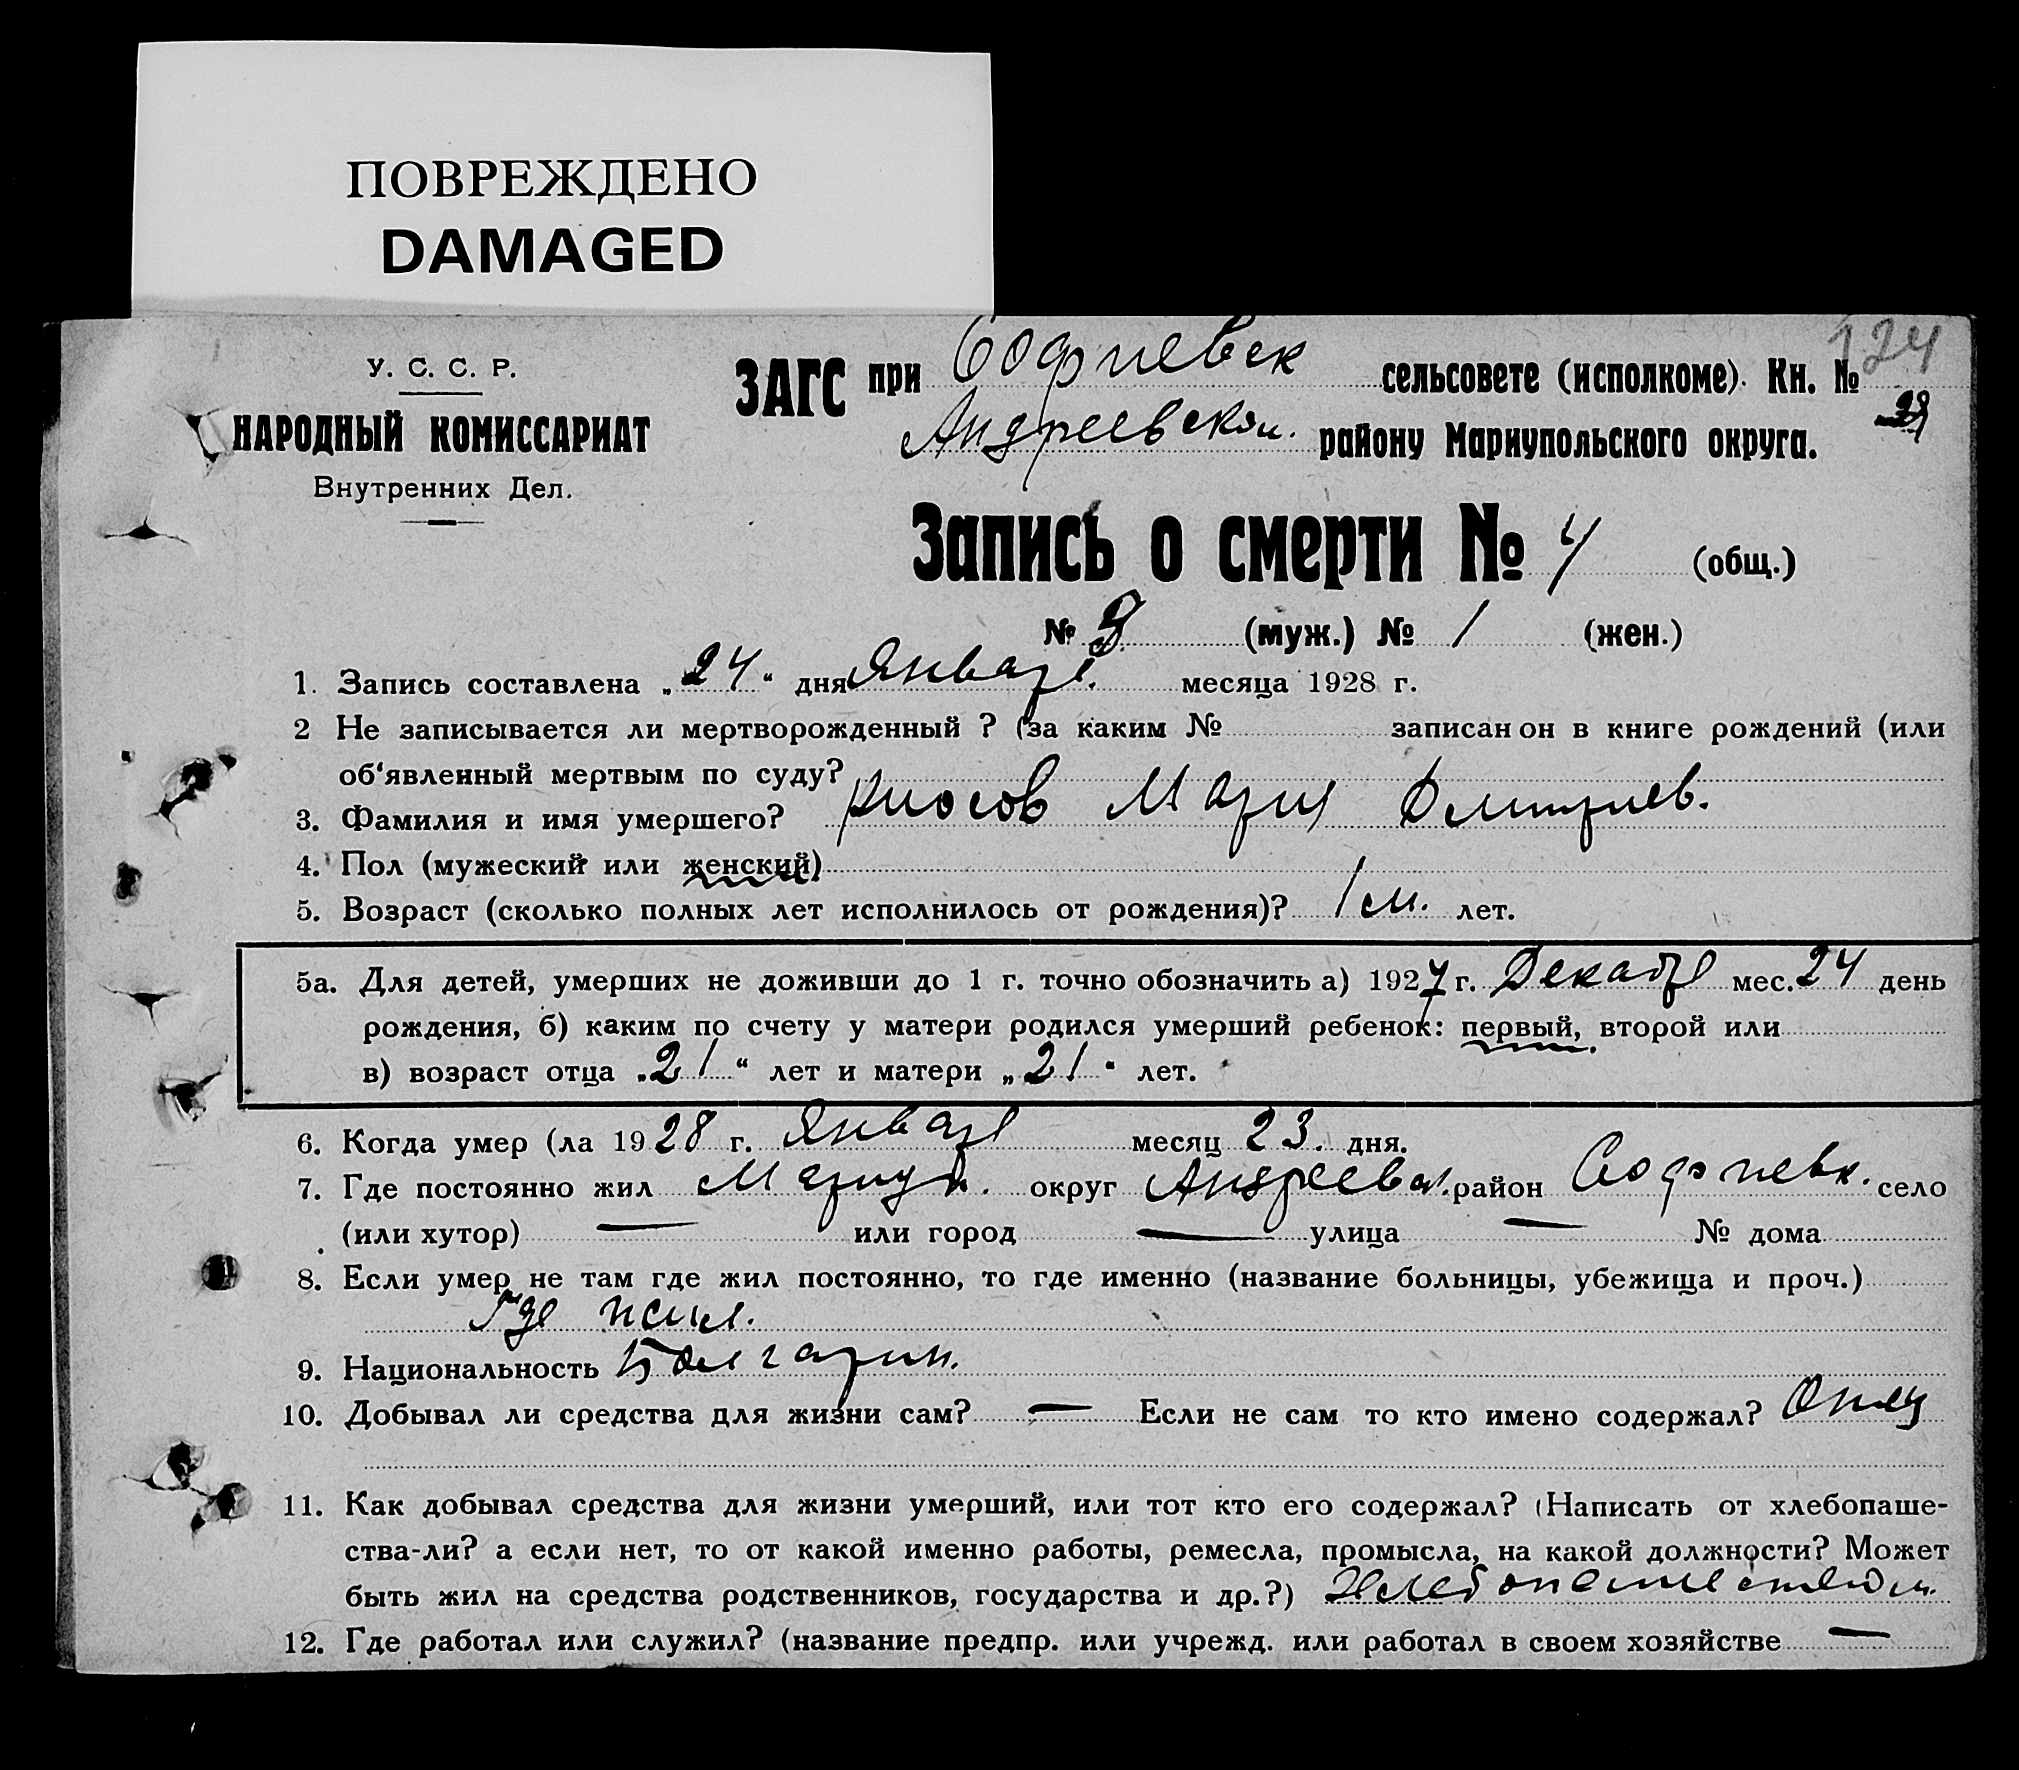 ПОВРЕЖДЕНО
DAMAGED
124
У. С. С. Р.
НАРОДНЫЙ КОМИССАРИАТ
Внутренних Дел.
ЗАГС при Софиевск сельсовете (исполкоме). Кн. №
Андреевском. району Мариупольского округа.
Запись о смерти № 4 (общ.)
№ 3 (муж.) № 1 (жен.)
1. Запись составлена „24“ дня Января. месяца 1928 г.
2 Не записывается ли мертворожденный ? (за каким № записан он в книге рождений (или
об'явленный мертвым по суду?
3. Фамилия и имя умершего? Мария Дмитриев.
4. Пол (мужеский или женский)
5. Возраст (сколько полных лет исполнилось от рождения)? 1 м. лет.
5а. Для детей, умерших не доживши до 1 г. точно обозначить а) 1927 г. Декабря мес. 24 день
рождения, б) каким по счету у матери родился умерший ребенок: первый, второй или
в) возраст отца „21“ лет и матери „21“ лет.
6. Когда умер (ла 1928 г. Января месяц 23. дня.
7. Где постоянно жил Мариуп. округ Андреевск. район Софиевк. село
(или хутор) — или город — улица — № дома
8. Если умер не там где жил постоянно, то где именно (название больницы, убежища и проч.)
Где жил.
9. Национальность Болгарин.
10. Добывал ли средства для жизни сам? — Если не сам то кто имено содержал? Отец
11. Как добывал средства для жизни умерший, или тот кто его содержал? (Написать от хлебопаше-
ства-ли? а если нет, то от какой именно работы, ремесла, промысла, на какой должности? Может
быть жил на средства родственников, государства и др.?) Хлебопашеством.
12. Где работал или служил? (название предпр. или учрежд. или работал в своем хозяйстве —